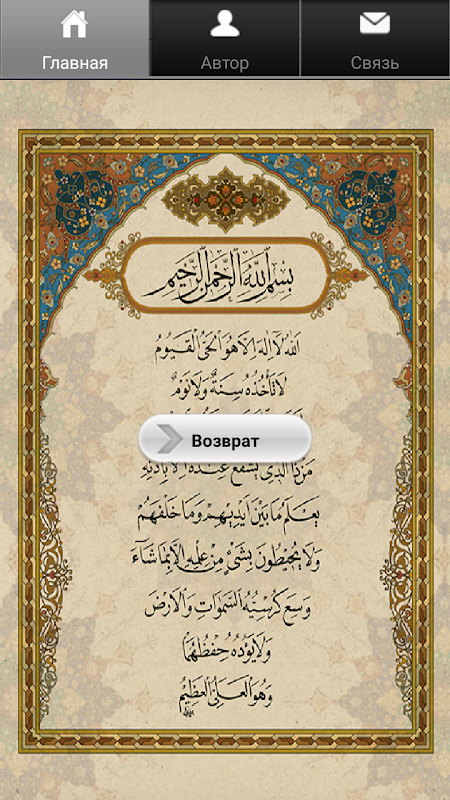 Главная
Автор
Связь
بسم الله الرحمن الرحيم
الله لا اله الا هو الحي القيوم
لا تأخذه سنة ولا نوم
Возврат
من ذا الذي يشفع عنده الا باذنه
يعلم ما بين ايديهم وما خلفهم
ولا يحيطون بشئ من علمه الا بما شاء
وسع كرسيه السموات والارض
ولا يؤده حفظهما
وهو العلي العظيم